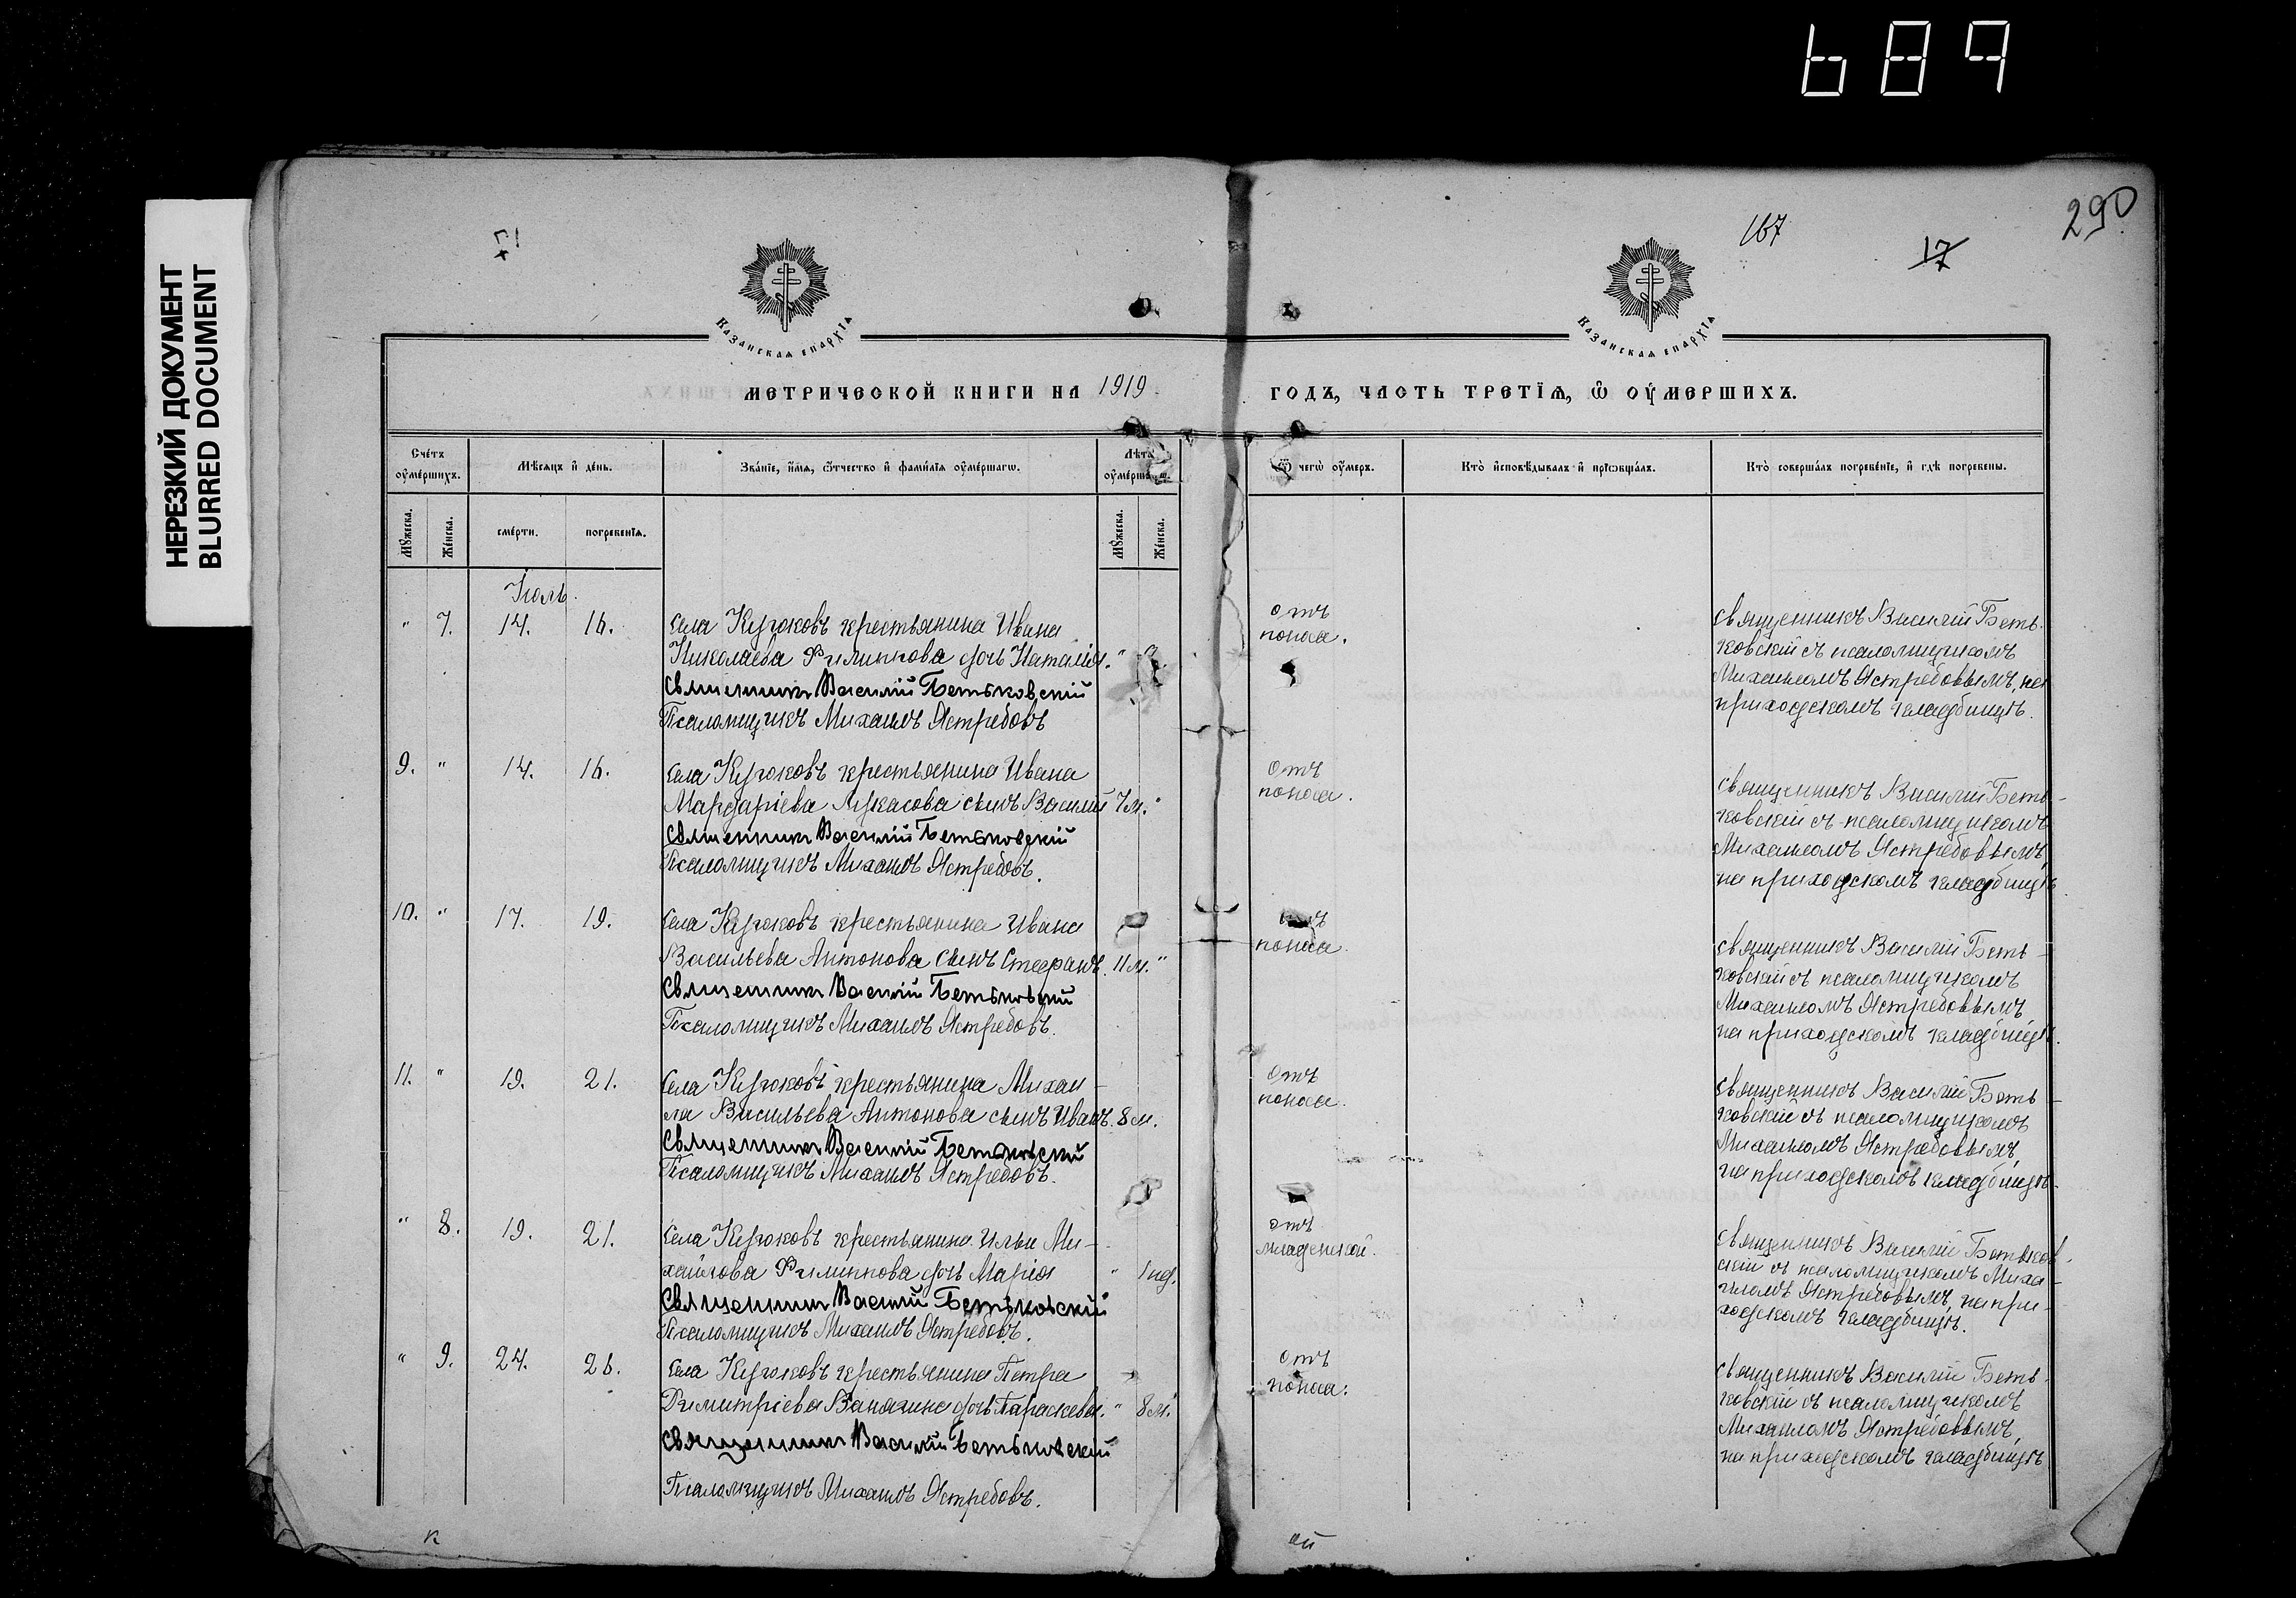 689
НЕРЕЗКИЙ ДОКУМЕНТ
BLURRED DOCUMENT
167
17
290
Казанская епархїя
Казанская епархїя
МЕТРИЧЕСКОЙ КНИГИ НА 1919 ГОДЪ, ЧАСТЬ ТРЕТЇЯ, Ѿ ОУМЕРШИХЪ.
Счетъ оумершихъ.
Мѣсяцъ и день.
Званїе, имя, отчество и фамилїя оумершагѡ.
Лѣта оумершагѡ.
Ѿ чегѡ оумеръ.
Кто исповѣдывалъ и прїѡбщалъ.
Кто совершалъ погребенїе, и гдѣ погребены.
Мужеска.
Женска.
смерти.
погребенїя.
Мужеска.
Женска.
Іюль.
" 7. 14. 16. Села Кугюковъ крестьянина Ивана
Николаева Филиппова дочь Наталія. "
Священникъ Василій Бетьковскій
Псаломщикъ Михаилъ Ястребовъ
отъ
поноса.
священникъ Василій Беть-
ковскій съ псаломщикомъ
Михаиломъ Ястребовымъ, на
приходскомъ кладбищѣ.
9. " 14. 16. Села Кугюковъ крестьянина Ивана
Мардаріева Лукасова сынъ Василій 7 м. "
Священникъ Василій Бетьковскій
Псаломщикъ Михаилъ Ястребовъ.
отъ
поноса.
священникъ Василій Беть-
ковскій съ псаломщикомъ
Михаиломъ Ястребовымъ,
на приходскомъ кладбищѣ
10. " 17. 19. Села Кугюковъ крестьянина Ивана
Васильева Антонова сынъ Стефанъ. 11 м. "
Священникъ Василій Бетьковскій
Псаломщикъ Михаилъ Ястребовъ.
отъ
поноса.
священникъ Василій Беть-
ковскій съ псаломщикомъ
Михаиломъ Ястребовымъ
на приходскомъ кладбищѣ.
11. " 19. 21. Села Кугюковъ крестьянина Михаи-
ла Васильева Антонова сынъ Иванъ. 8 м.
Священникъ Василій Бетьковскій
Псаломщикъ Михаилъ Ястребовъ.
отъ
поноса.
священникъ Василій Беть-
ковскій съ псаломщикомъ
Михаиломъ Ястребовымъ,
на приходскомъ кладбищѣ.
" 8. 19. 21. Села Кугюковъ крестьянина Ильи Ми-
хайлова Филиппова дочь Марія " 1 нд.
Священникъ Василій Бетьковскій
Псаломщикъ Михаилъ Ястребовъ.
отъ
младенской.
священникъ Василій Бетьков-
скій съ псаломщикомъ Миха-
иломъ Ястребовымъ, на при-
ходскомъ кладбищѣ.
" 9. 24. 26. Села Кугюковъ крестьянина Петра
Димитріева Ванягина дочь Параскева. " 8 м.
Священникъ Василій Бетьковскій
Псаломщикъ Михаилъ Ястребовъ.
отъ
поноса.
священникъ Василій Беть-
ковскій съ псаломщикомъ
Михаиломъ Ястребовымъ,
на приходскомъ кладбищѣ